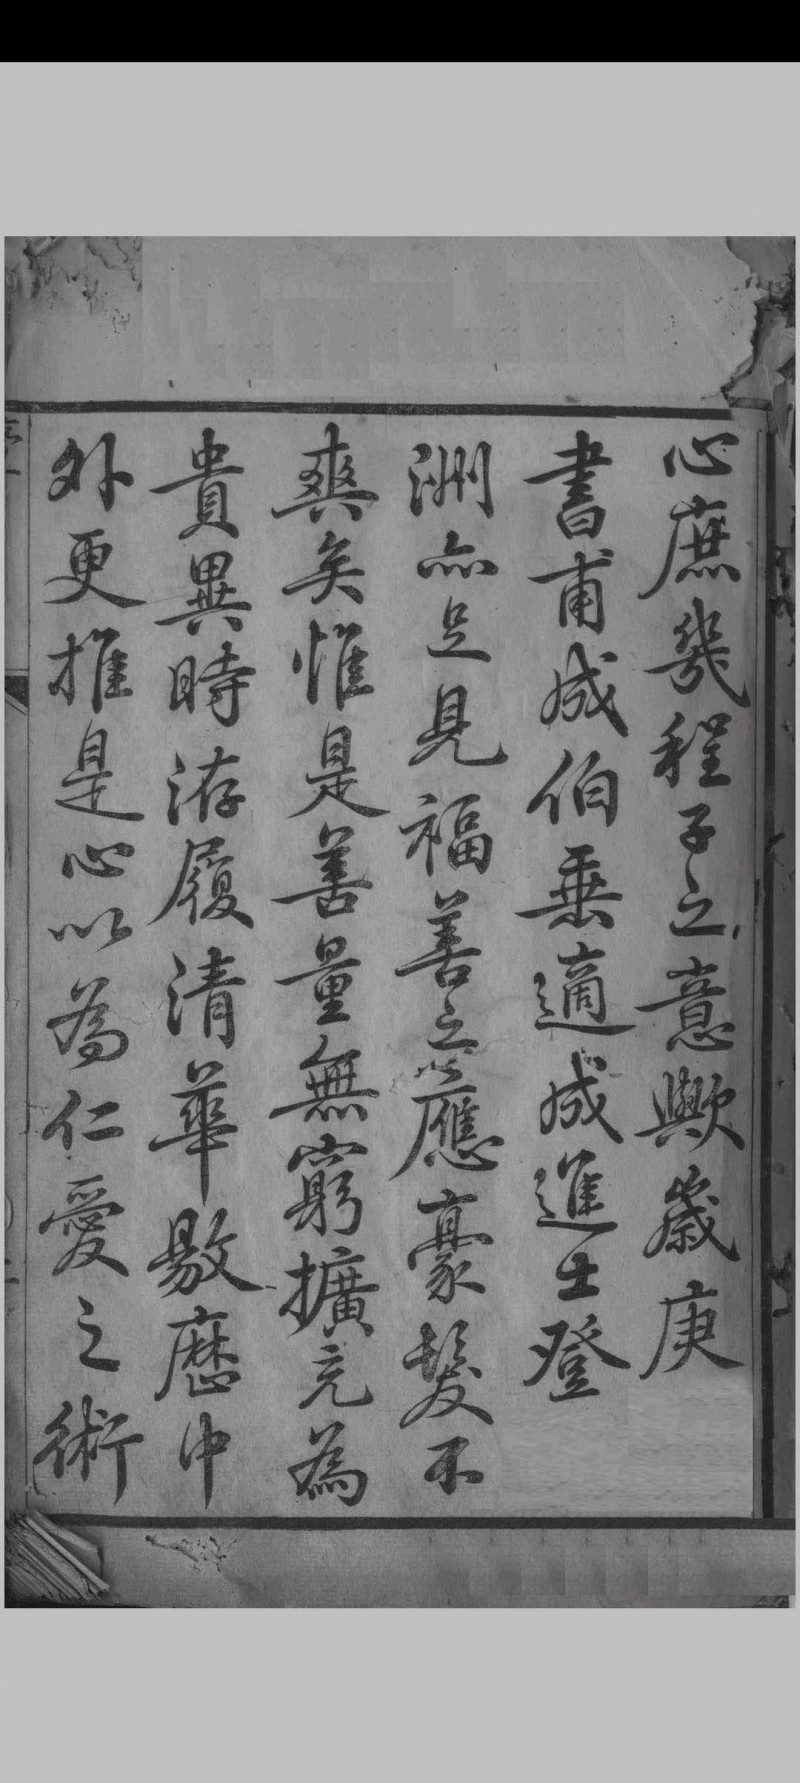 心庶幾程子之意歟歲庚
書甫成伯乗適成進士登
洲亦足見福善之應豪髮不
爽矣惟是善量無窮擴充為
貴異時洊履清華敭歷中
外更推是心以為仁愛之術